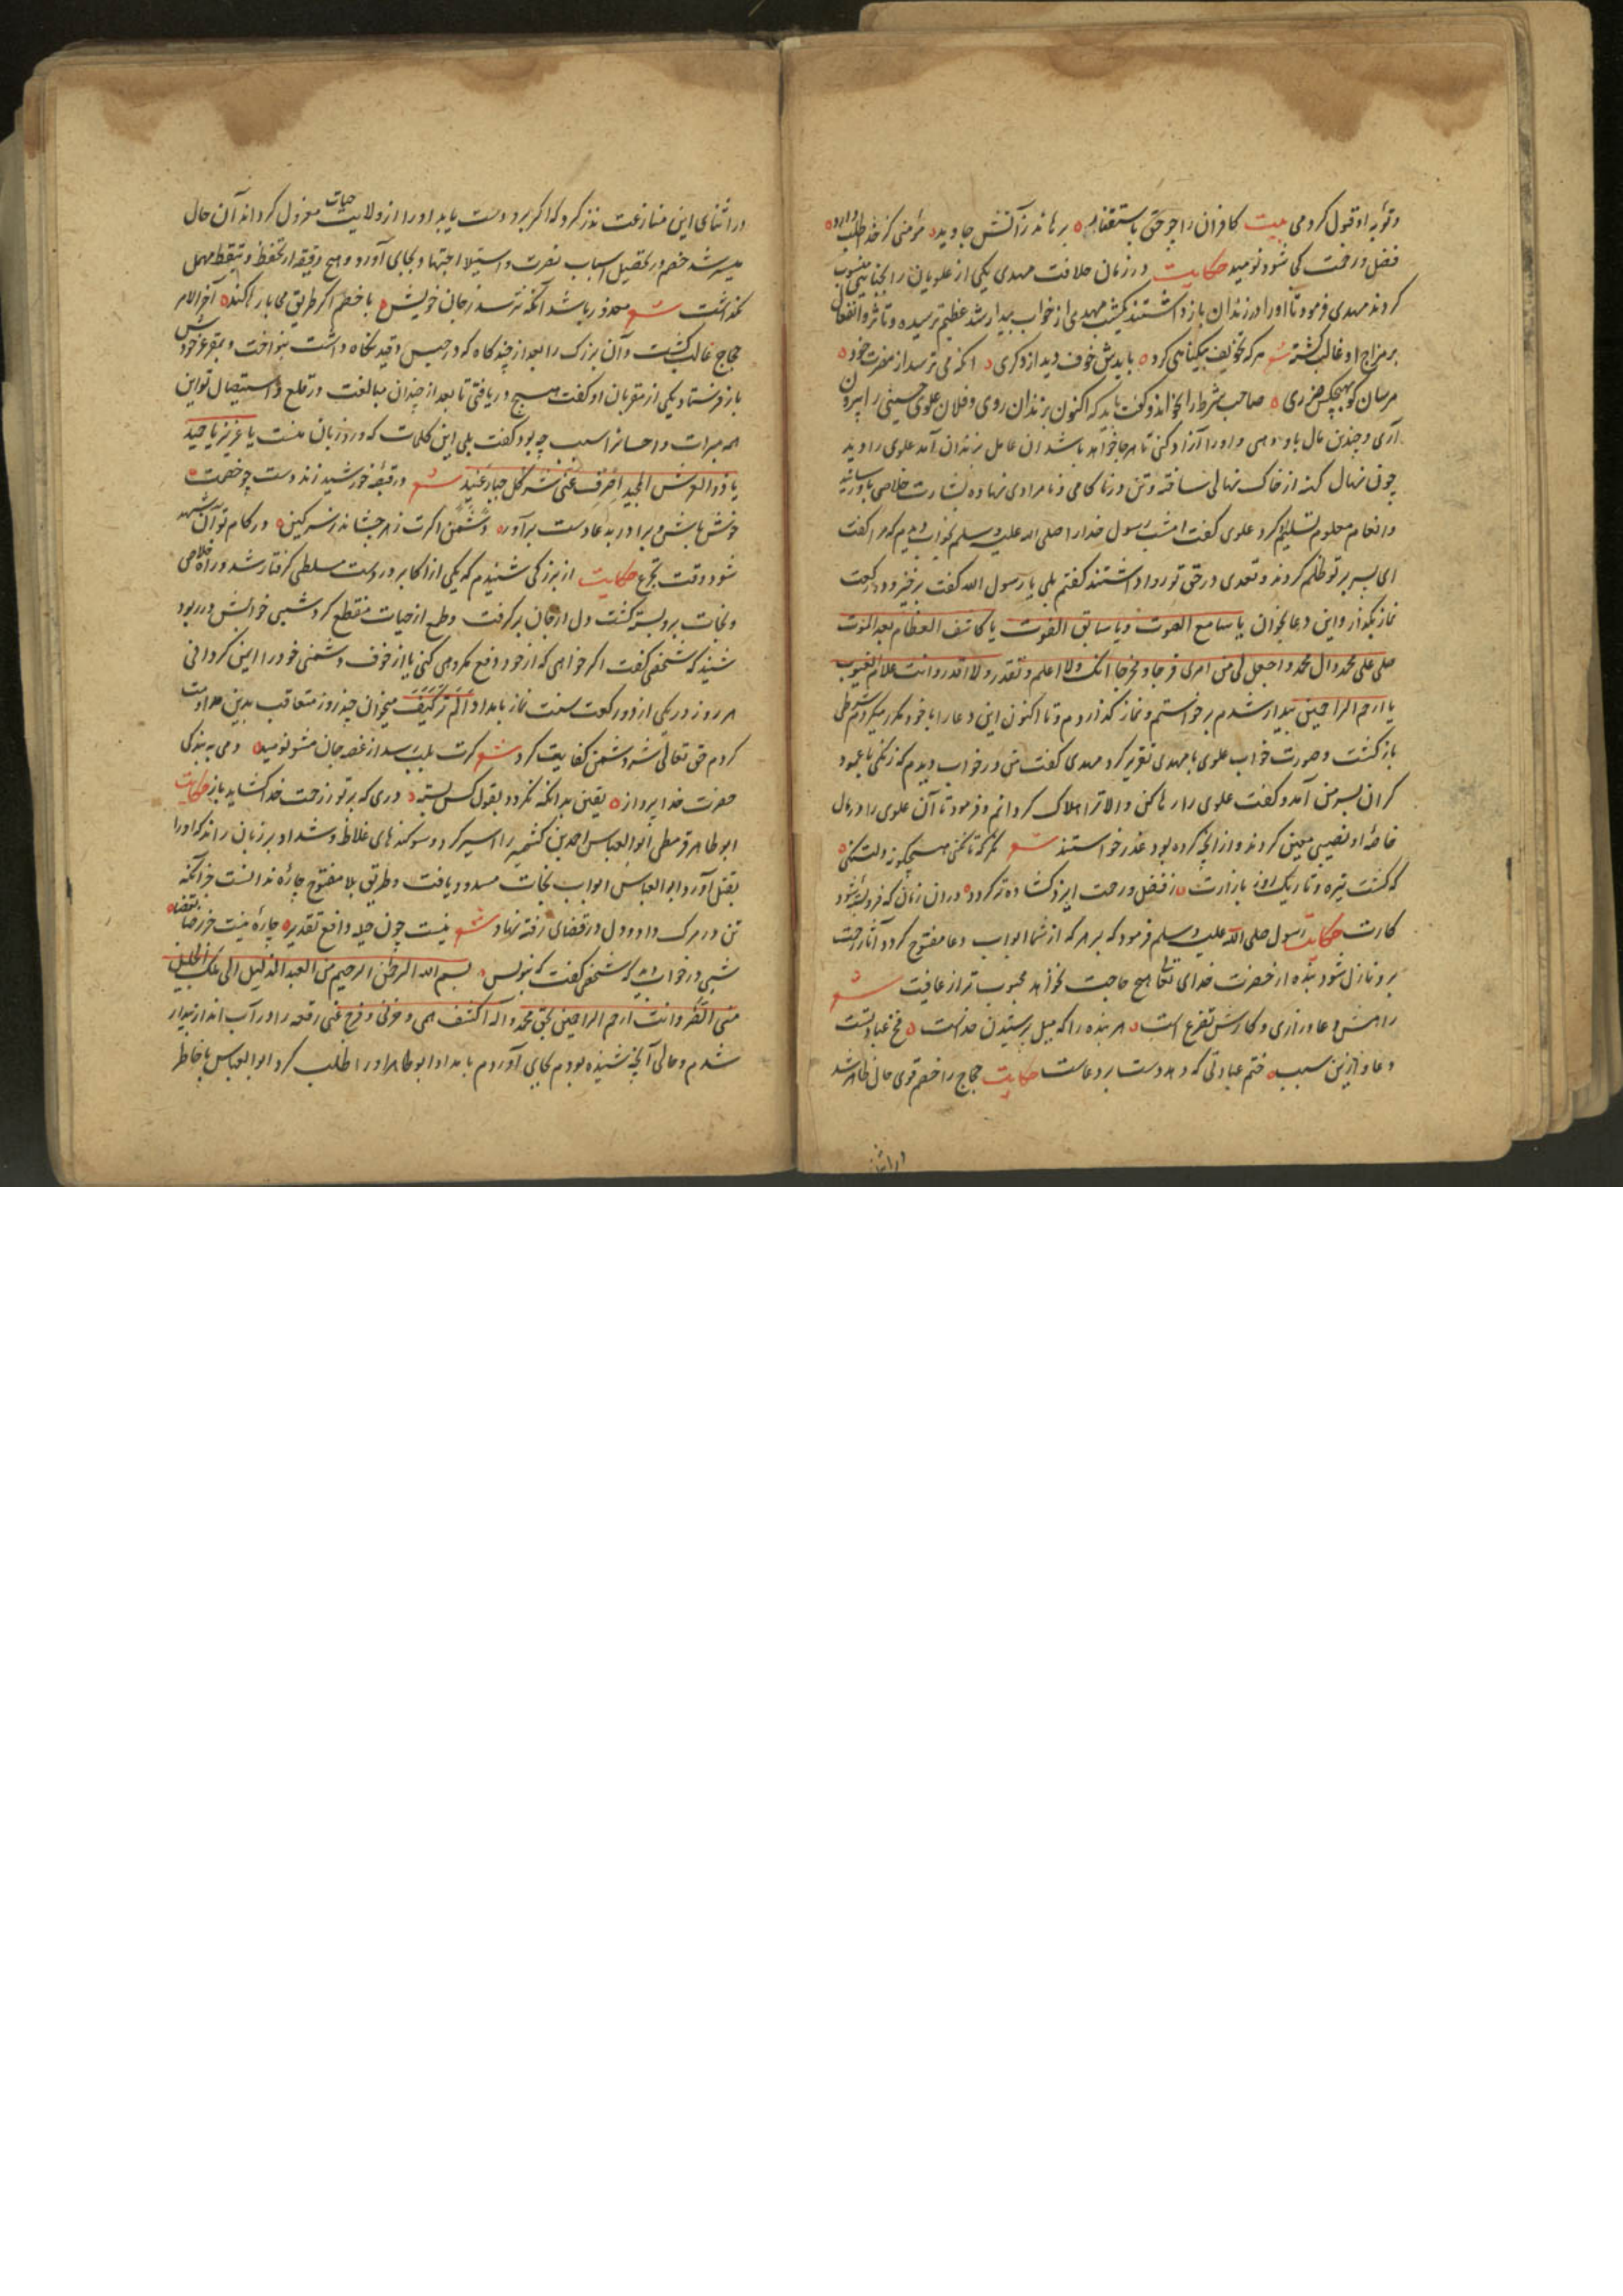 وتوبهٔ او قبول کردمی بیت کافران را چو حق باستغفار برهاند ز آتش جاوید مؤمنی کز خدا طلب دارد
فضل و رحمت کی شود نومید حکایت در زمان خلافت مهدی یکی از علویان را بجنایتی منسوب
کردند مهدی فرمود تا او را در زندان بازداشتند یکشب مهدی از خواب بیدار شد عظیم ترسیده و تاثر و انفعال
بر مزاج او غالب گشته شعر هر که تخویف بیگناهی کرد بایدش خوف دید از دگری انکه می ترسد از مضرت خود
مرسان گو بهیچکس ضرری صاحب شرط را بخواند و گفت باید که اکنون بزندان روی و فلان علوی حسینی را بیرون
آری و چندین مال باو دهی و او را آزاد کنی تا هر جا خواهد باشد ان عامل بزندان آمد علوی را دید
چون نهال کهنه از خاک نهالی ساخته و تن در ناکامی و نامرادی نهاده بشارت خلاصی باو رسانید
و انعام معلوم تسلیم کرد علوی گفت امشب رسول خدا را صلی الله علیه وسلم بخواب دیدم که مرا گفت
ای پسر بر تو ظلم کردند و تعدی در حق تو روا داشتند گفتم بلی یا رسول الله گفت برخیز و دو رکعت
نماز بگذار و این دعا بخوان یا سامع الصوت ویا سابق الفوت یا کاشف العظام بعد الموت
صل علی محمد وال محمد واجعل لی من امری فرجا ومخرجا انک تعلم ولا اعلم وتقدر ولا اقدر وانت علام الغیوب
یا ارحم الراحمین بیدار شدم برخواستم و نماز گذاردم و تا اکنون این دعا را با خود مکرر میکردم شرطی
بازگشت و صورت خواب علوی با مهدی تقریر کرد مهدی گفت من در خواب دیدم که زنگی با عمود
گران بسر من آمد و گفت علوی را رها کن والا ترا هلاک گردانم و فرمود تا آن علوی را از مال
خاصهٔ او نصیبی معین کردند و از انچه کرده بود عذر خواستند شعر
که گشت تیره و تاریک روز بازارت ز فضل و رحمت ایزد گشاده تر گردد دران زمان که فرو بسته شود
کارت حکایت رسول صلی الله علیه وسلم فرمود که بر هر که از شما ابواب دعا مفتوح گردد آثار رحمت
برو نازل شود بنده از حضرت خدای تعالی هیچ حاجت نخواهد محبوب تر از عافیت شعر
رامش دعا و زاری و کارش تضرع است هر بنده را که میل پرستیدن خداست مخ عبادتست
دعا و ازین سبب ختم عبادتی که دهد دست بر دعاست حکایت حجاج را خصم قوی حال ظاهر شد
در اثنای
در اثنای این منازعت نذر کرد که اگر برو دست یابد او را از ولایت حیات معزول گرداند آن حال
میسر شد خصم در تحصیل اسباب نصرت و استیلا اجتهاد بجای آورد و هیچ دقیقه از تحفظ و تیقظ مهمل
نگذاشت شعر معذور باشد آنکه نترسد ز جان خویش با خصم اگر طریق محابا رها کند آخر الامر
حجاج غالب گشت و آن بزرگ را بعد از چند گاه که در حبس و قید نگاه داشت بنواخت و بمقر عز خودش
باز فرستاد یکی از مقربان او گفت هیچ دریافتی تا بعد از چندان مبالغت در قلع و استیصال تو این
همه مبرات و احسان را سبب چه بود گفت بلی این کلمات که ورد زبان منست یا عزیز یا حمید
یا ذو العرش المجید اصرف عنی شر کل جبار عنید شعر در قبضهٔ خورشید زند دست چو خصمت
خوش باش و برادر بدعا دست برآور دشمن اگرت زهر چشاند ز سر کین در کام تو آن شهد
شود وقت تجرع حکایت از بزرگی شنیدم که یکی از اکابر در دست مسلطی گرفتار شد و راه خلاص
و نجات برو بسته گشت دل از جان برگرفت و طمع از حیات منقطع کرد شبی خوابش در ربود
شنید که شخصی گفت اگر خواهی که از خود دفع مکروهی کنی یا از خوف دشمنی خود را ایمن گردانی
هر روز در یکی از دو رکعت سنت نماز بامداد الم تر کیف میخوان چند روز متعاقب بدین مداومت
کردم حق تعالی شر دشمن کفایت کرد شعر گرت بلب رسد از غصه جان مشو نومید دمی به بندگی
حضرت خدا پرداز یقین بدانکه نگردد بقول کس بسته دری که بر تو ز رحمت خدا گشاید باز حکایت
ابو طاهر قرمطی ابو العباس احمد بن کشمرد را اسیر کرد و سوگندهای غلاظ و شداد بر زبان راند که او را
بقتل آورد ابو العباس ابواب نجات مسدود یافت و طریق بلا مفتوح چارهٔ ندانست جز آنکه
تن در مرگ داد و دل در قضای رفته نهاد شعر نیست چون حیله دافع تقدیر چارهٔ نیست جز رضا بقضا
شبی در خواب دید که شخصی گفت که بنویس بسم الله الرحمن الرحیم من العبد الذلیل الی ملک الجلیل
مسنی الضر وانت ارحم الراحمین بحق محمد واله اکشف همی وحزنی وفرج عنی رقعه را در آب انداز بیدار
شدم و حالی آنچه شنیده بودم بجای آوردم بامداد ابو طاهر او را طلب کرد ابو العباس با خاطر